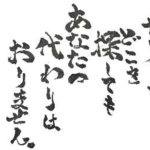 どこを
探しても
あなたの
代わりは
おりません。